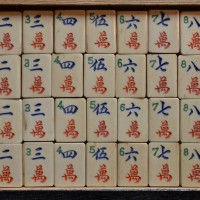 二 3 三 4 四 5 伍 6 六 7 七 8 八
萬 萬 萬 萬 萬 萬 萬
二 3 三 4 四 5 伍 6 六 7 七 8 八
萬 萬 萬 萬 萬 萬 萬
二 3 三 4 四 5 伍 6 六 7 七 8 八
萬 萬 萬 萬 萬 萬 萬
二 3 三 4 四 5 伍 6 六 7 七 8 八
萬 萬 萬 萬 萬 萬 萬